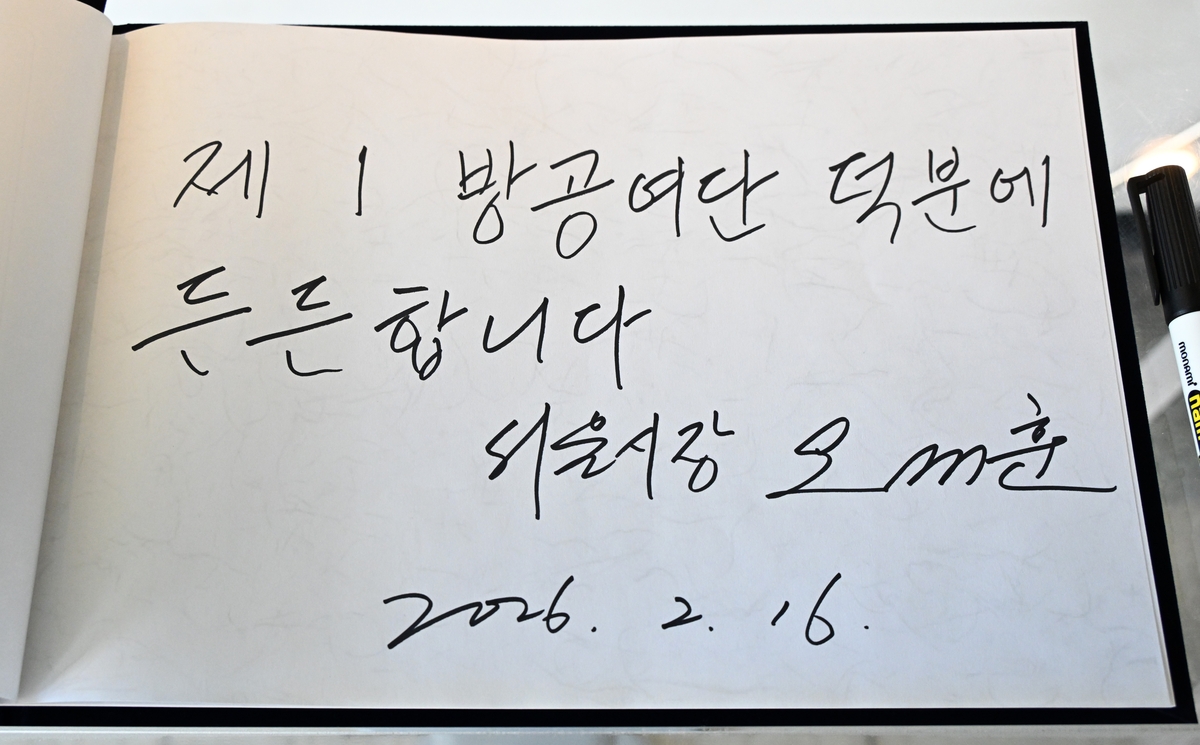 제 1 방공여단 덕분에
든든합니다
서울시장 오세훈
2026. 2. 16.
monami